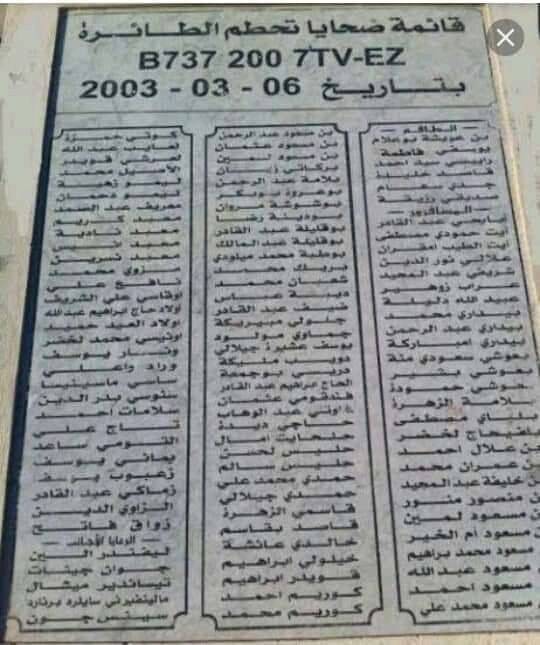 قائمة ضحايا تحطم الطائرة
B737 200 7TV-EZ
بتاريخ 06 - 03 - 2003
الطاقم
بن عويشة بوعلام
يوسفي فاطمة
رابيسي سيد احمد
قاصد خليدة
جدي سهام
صديقي رزيقة
المسافرون
عبد القادر
آيت حمودي مصطفى
آيت الطيب امقران
علالي نور الدين
شريفي عبد المجيد
عراب زوهير
عبيد الله دليلة
بيداري محمد
بيداري عبد الرحمن
بيداري امباركة
بحوشي سعودي منة
بحوشي بشير
بحوشي حمودة
سلامة الزهرة
بلباي مصطفى
بلضيحاج لخضر
بن علال احمد
بن عمران محمد
بن خليفة عبد المجيد
بن منصور منور
بن مسعود لمين
مسعود ام الخير
مسعود محمد براهيم
مسعود عبد الله
مسعود احمد
مسعود محمد علي
بن مسعود عبد الرحمن
بن مسعود عثمان
بن مسعود لمين
بركاني زيان
بلامة عبد الرحمن
بوعرورة بوبكر
بوشوشة مروان
بودينة رضا
بوقليلة عبد القادر
بوقليلة عبد المالك
بوطبة محمد ميلودي
بريك محمد
شعبان محمد
ديبة عباس
ضيف عبد القادر
جولي مبيريكة
جماوي مولود
يوسف عشيرة جيلالي
دويبي بيكة
دريسي بوجمعة
الحاج ابراهيم عبد القادر
فندقومي عثمان
اوني عبد الوهاب
حاجي ديدة
حلحايت امال
حليس لحسن
حليس سالم
حمدي محمد علي
حمدي جيلالي
قاسمي الزهرة
قاصد بقاسم
خالدي عائشة
خيلولي ابراهيم
قويدر ابراهيم
كوريم احمد
كوريم محمد
كوني حمزة
لعايب عبد الله
لعرشي قويدر
الأصيل محمد
ليمو زهية
ليمو دحمان
معريف عبد الصمد
معمد كاريم
معمد نادية
معمد انيس
معمد نسرين
مزوي محمد
نافع علي
اوقاسي علي الشريف
اولاد حاج ابراهيم عبد الله
اولاد العيد حميد
اونيسي محمد لخضر
ونار يوسف
وراد واعلي
ساسي ماسينيسا
سنوسي بدر الدين
سلامات احمد
تاج علي
التومي ساعد
يماني يوسف
زعبوب يوسف
زماكي عبد القادر
الزاوي الدين
زواق فاتح
الرعايا الأجانب
ليفندر الين
جوان جينات
تيساندير ميشال
مالينفيرني سايلرد برنارد
سيتس جون